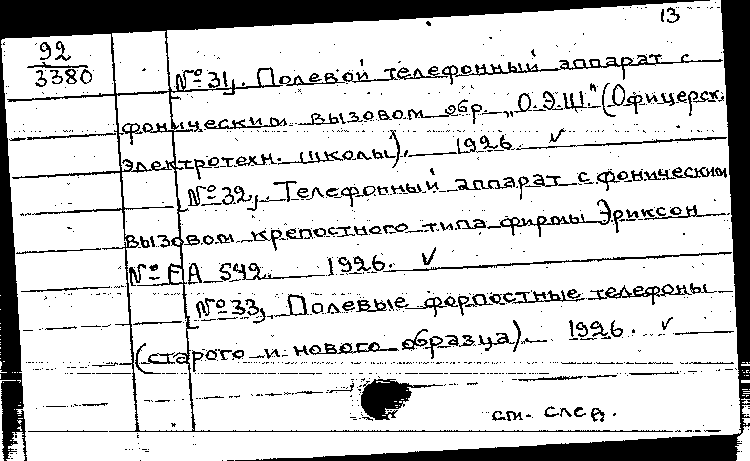 13
92
3380
№ 31, Полевой телефонный аппарат с
фоническим вызовом обр. „О.Э.Ш." (Офицерск.
электротехн. школы). 1926. ✓
№ 32, Телефонный аппарат с фоническим
вызовом крепостного типа фирмы Эриксон
№ ЕА 542. 1926. ✓
№ 33, Полевые форпостные телефоны
(старого и нового образца). 1926. ✓
см. след.